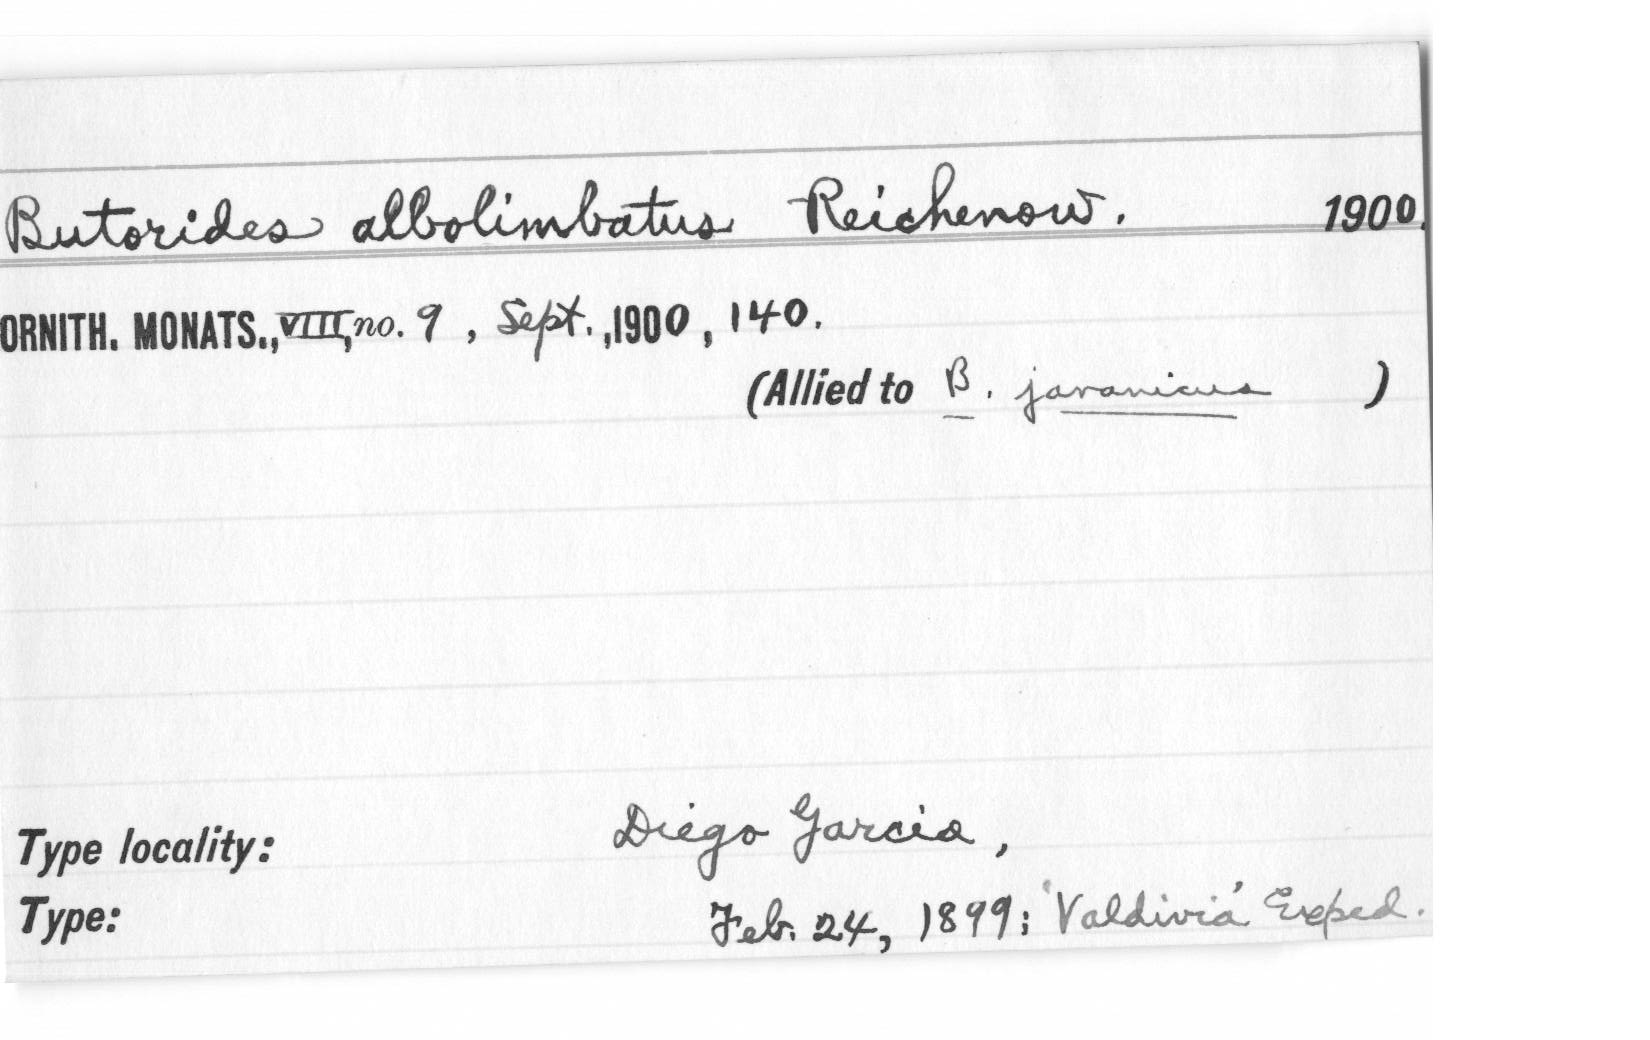 Butorides albolimbatus Reichenow. 1900.
ORNITH. MONATS., VIII, no. 9, Sept., 1900, 140.
(Allied to B. javanicus )
Type locality: Diego Garcia,
Type: Feb. 24, 1899; 'Valdivia' Exped.